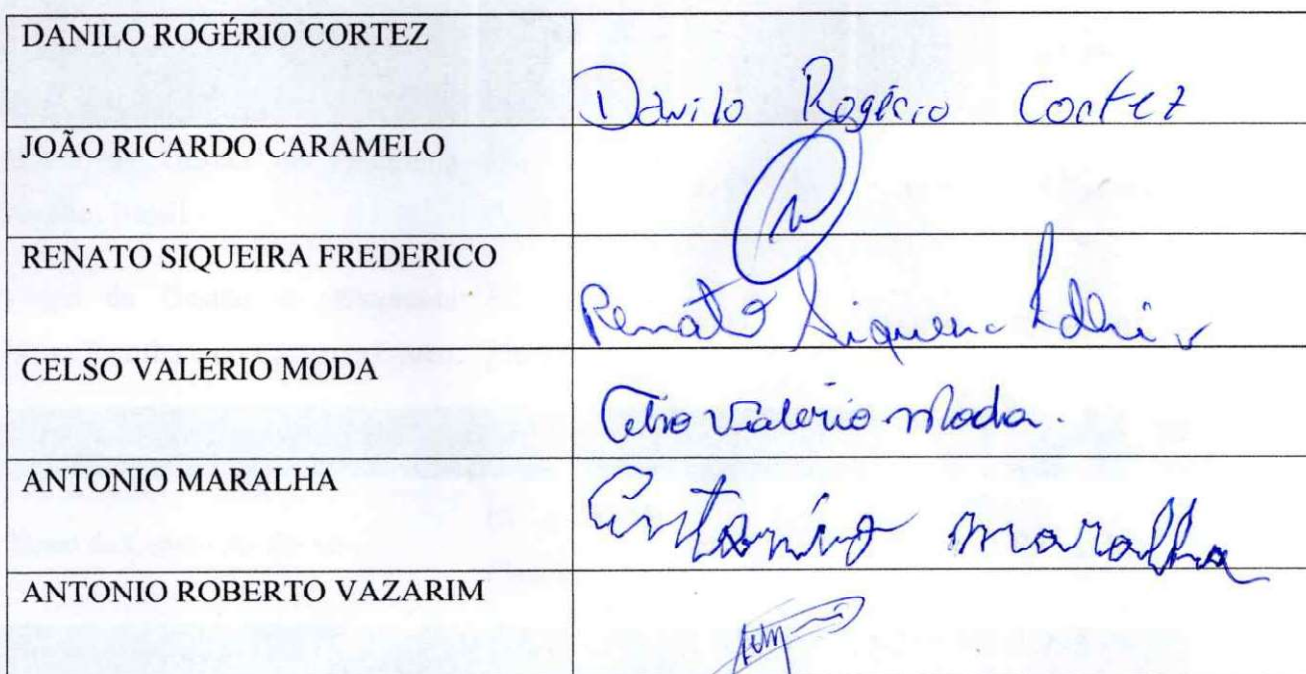 DANILO ROGÉRIO CORTEZ
Danilo Rogério Cortez
JOÃO RICARDO CARAMELO
RENATO SIQUEIRA FREDERICO
Renato Siqueira
CELSO VALÉRIO MODA
Celso Valerio Moda.
ANTONIO MARALHA
Antonino maralha
ANTONIO ROBERTO VAZARIM